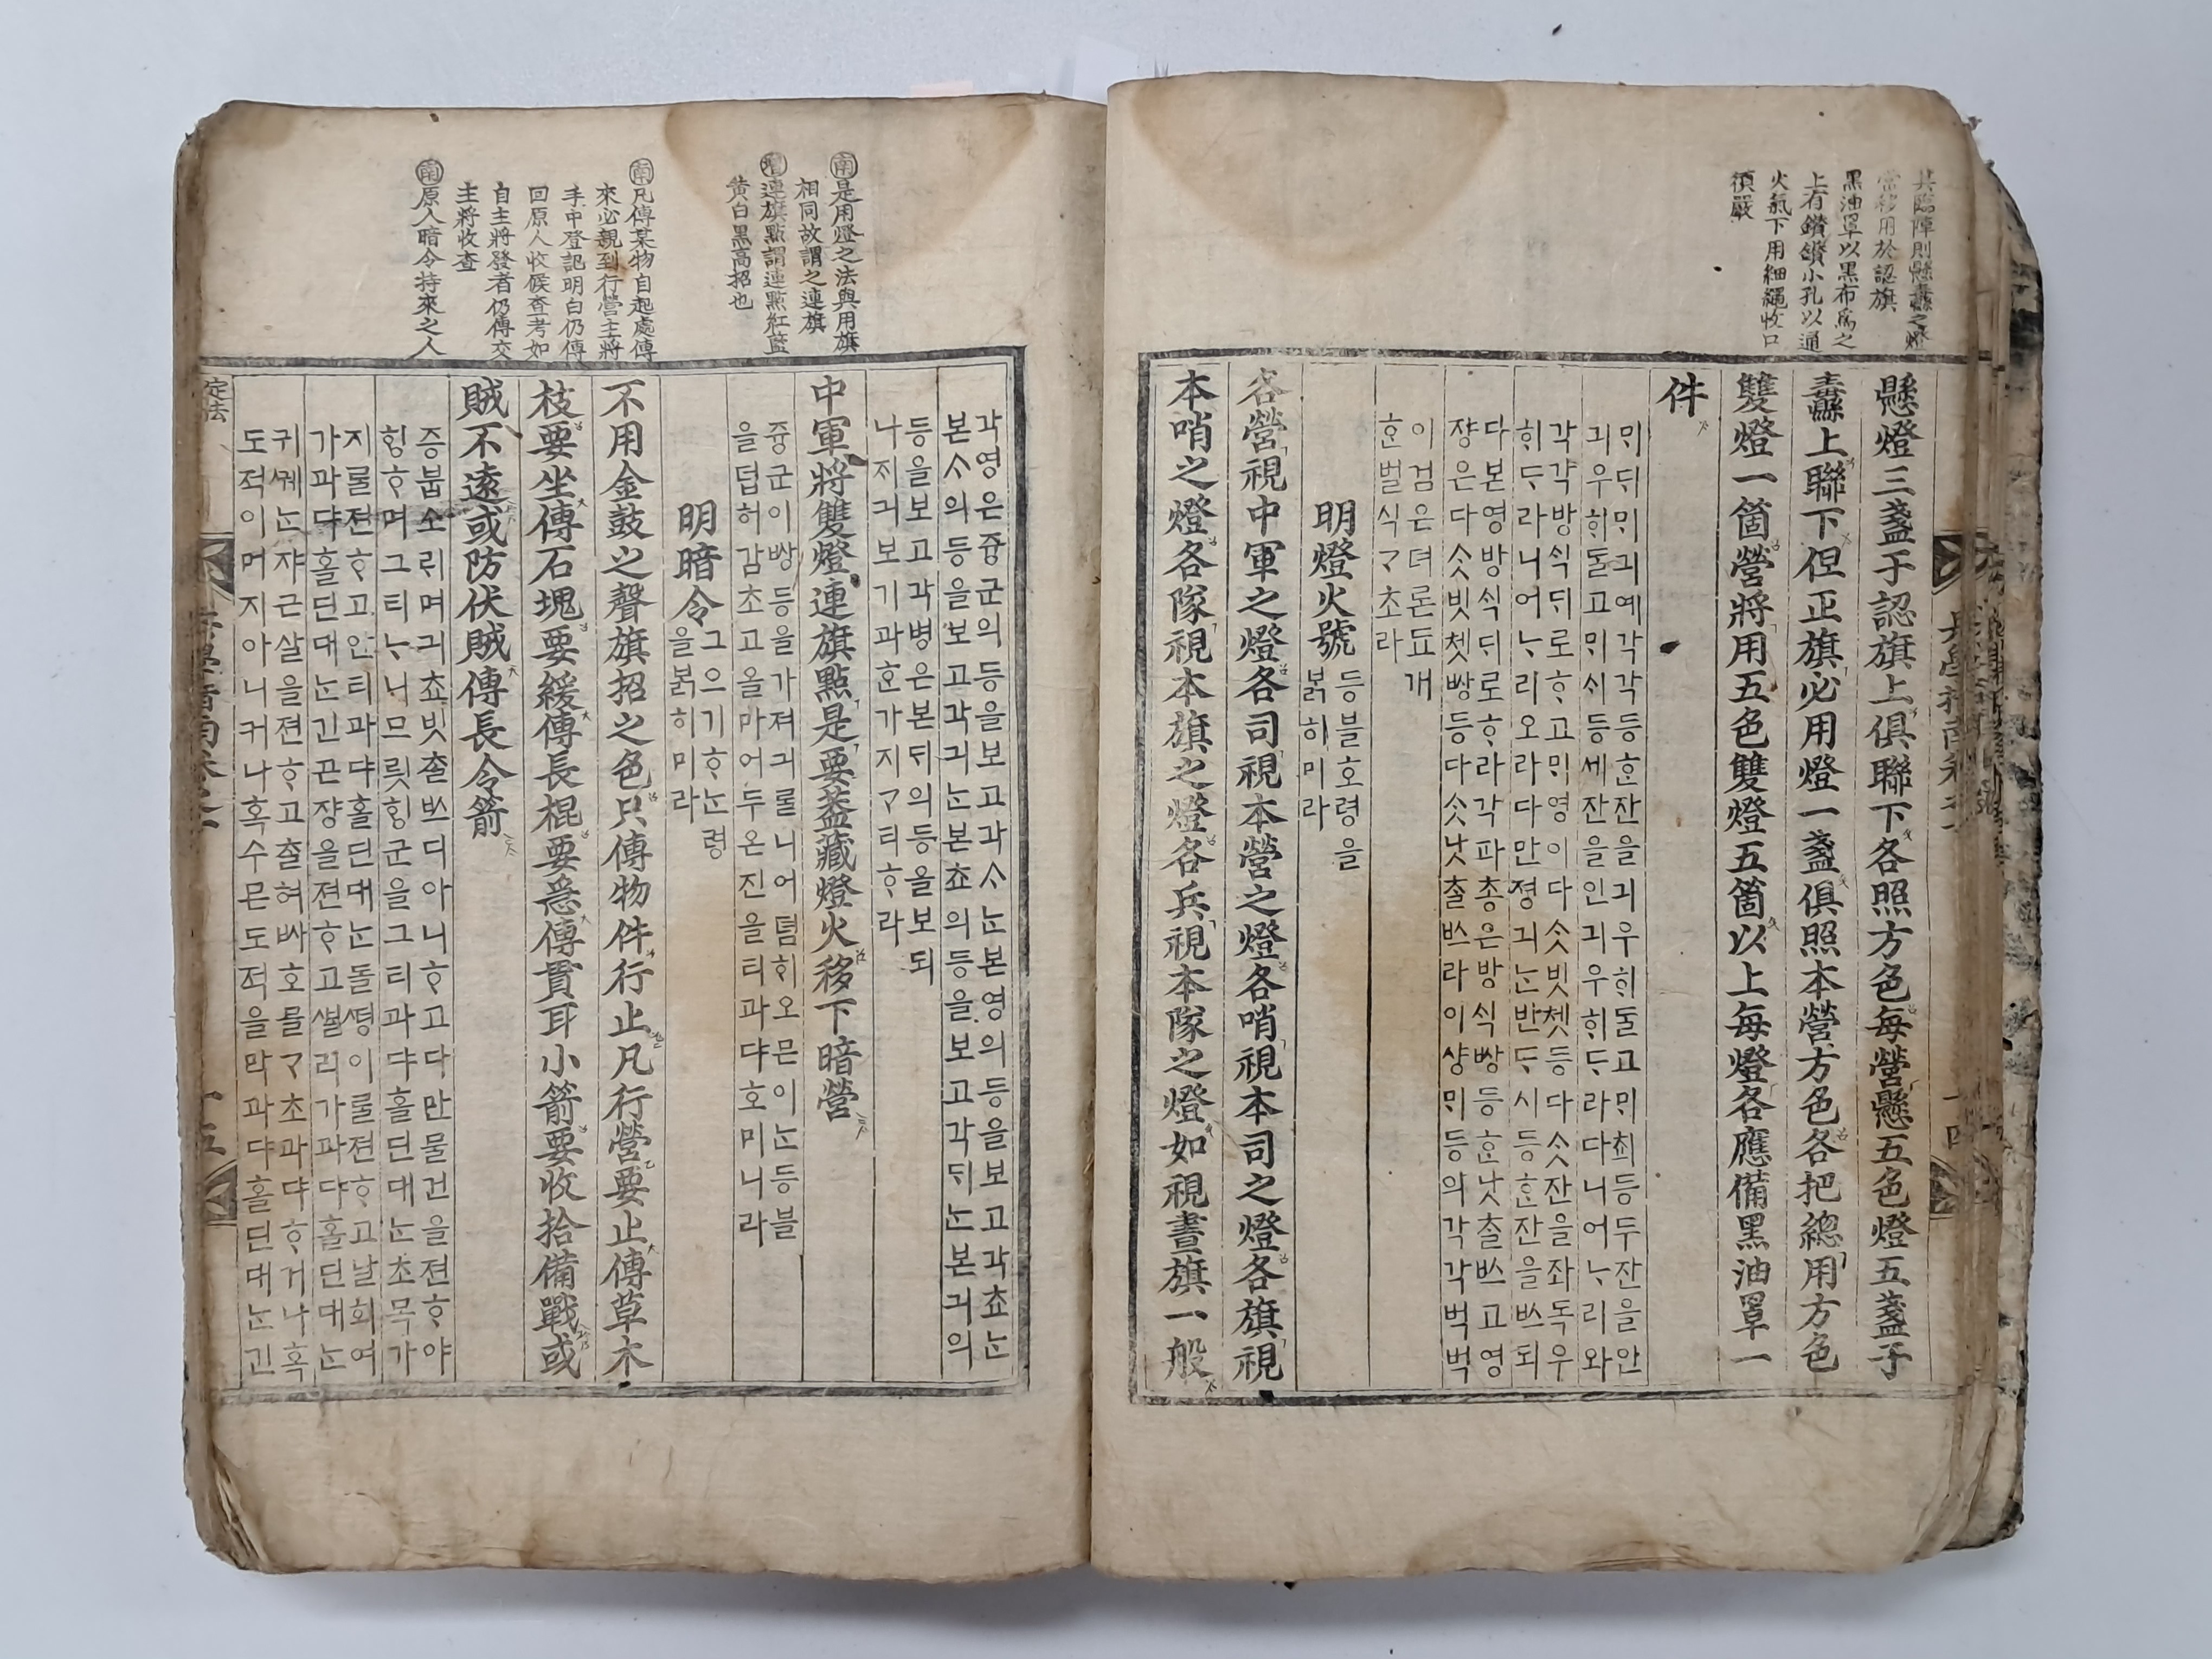 其臨陣則懸纛之燈
當移用於認旗
黑油罩以黑布爲之
上有鑽鑽小孔以通
火氣下用細繩收口
須嚴
懸燈三盞于認旗上俱聯下各照方色每營懸五色燈五盞于
纛上聯下但正旗必用燈一盞俱照本營方色各把總用方色
雙燈一箇營將用五色雙燈五箇以上每燈各應備黑油罩一
件
ᄆᆡᄃᆡᄆᆡ긔예각각등ᄒᆞᆫ잔을긔우희ᄃᆞᆯ고ᄆᆡ쵸등두잔을안
긔우희ᄃᆞᆯ고ᄆᆡᄉᆞ등세잔을인긔우희ᄃᆞ라다니어ᄂᆞ리와
각각방ᄉᆡᆨᄃᆡ로ᄒᆞ고ᄆᆡ영이다ᄉᆞᆺ빗쳇등다ᄉᆞᆺ잔을좌독우
희ᄃᆞ라니어ᄂᆞ리오라다만졍긔ᄂᆞᆫ반ᄃᆞ시등ᄒᆞᆫ잔을ᄡᅳ되
다본영방ᄉᆡᆨᄃᆡ로ᄒᆞ라각파총은방ᄉᆡᆨ쌍등ᄒᆞᆫ낫츨ᄡᅳ고영
쟝은다ᄉᆞᆺ빗쳇쌍등다ᄉᆞᆺ낫츨ᄡᅳ라이샹ᄆᆡ등의각각벅벅
이검은뎌론ᄃᆞ개
ᄒᆞᆫ벌식ᄀᆞ초라
明燈火號
등블호령을
ᄇᆞᆰ히미라
各營視中軍之燈各司視本營之燈各哨視本司之燈各旗視
本哨之燈各隊視本旗之燈各兵視本隊之燈如視晝旗一般
南是用燈之法與用旗
相同故謂之連旗
連旗點謂連點紅藍
黃白黑高招也
南凡傳某物自起處傳
來必親到行營主將
手中登記明白仍傳
回原人收候查考如
自主將發者仍傳交
主將收查
南原入暗令持來之人
각영은즁군의등을보고각ᄉᆞᄂᆞᆫ본영의등을보고각쵸ᄂᆞᆫ
본ᄉᆞ의등을보고각긔ᄂᆞᆫ본쵸의등을보고각ᄃᆡᄂᆞᆫ본긔의
등을보고각병은본ᄃᆡ의등을보되
나ᄌᆡ긔보기과ᄒᆞᆫ가지ᄀᆞ티ᄒᆞ라
中軍將雙燈連旗點是要葢藏燈火移下暗營
즁군이쌍등을가져긔ᄅᆞᆯ니어뎜희오믄이ᄂᆞᆫ등블
을덥허감초고올마어두온진을티과댜호미니라
明暗令
그으기ᄒᆞᄂᆞᆫ령
을ᄇᆞᆰ히미라
不用金鼓之聲旗招之色只傳物件行止凡行營要止傳草木
枝要坐傳石塊要緩傳長棍要急傳貫耳小箭要收拾備戰或
賊不遠或防伏賊傳長令箭
증붑소ᄅᆡ며긔쵸빗츨ᄡᅳ디아니ᄒᆞ고다만물건을젼ᄒᆞ야
ᄒᆡᆼᄒᆞ며그티ᄂᆞ니므릇ᄒᆡᆼ군을그티과댜홀딘대ᄂᆞᆫ초목가
지ᄅᆞᆯ젼ᄒᆞ고안티과댜홀딘대ᄂᆞᆫ돌ᄯᅥᆼ이ᄅᆞᆯ젼ᄒᆞ고날회여
가과댜홀딘대ᄂᆞᆫ긴곤쟝을젼ᄒᆞ고ᄲᆞᆯ리가과댜홀딘대ᄂᆞᆫ
귀ᄢᅦᄂᆞᆫ쟈근살을젼ᄒᆞ고츌혀ᄡᅡ호믈ᄀᆞ초과댜ᄒᆞ거나혹
도적이머지아니커나혹수믄도적을막과댜홀딘대ᄂᆞᆫ긴
定法